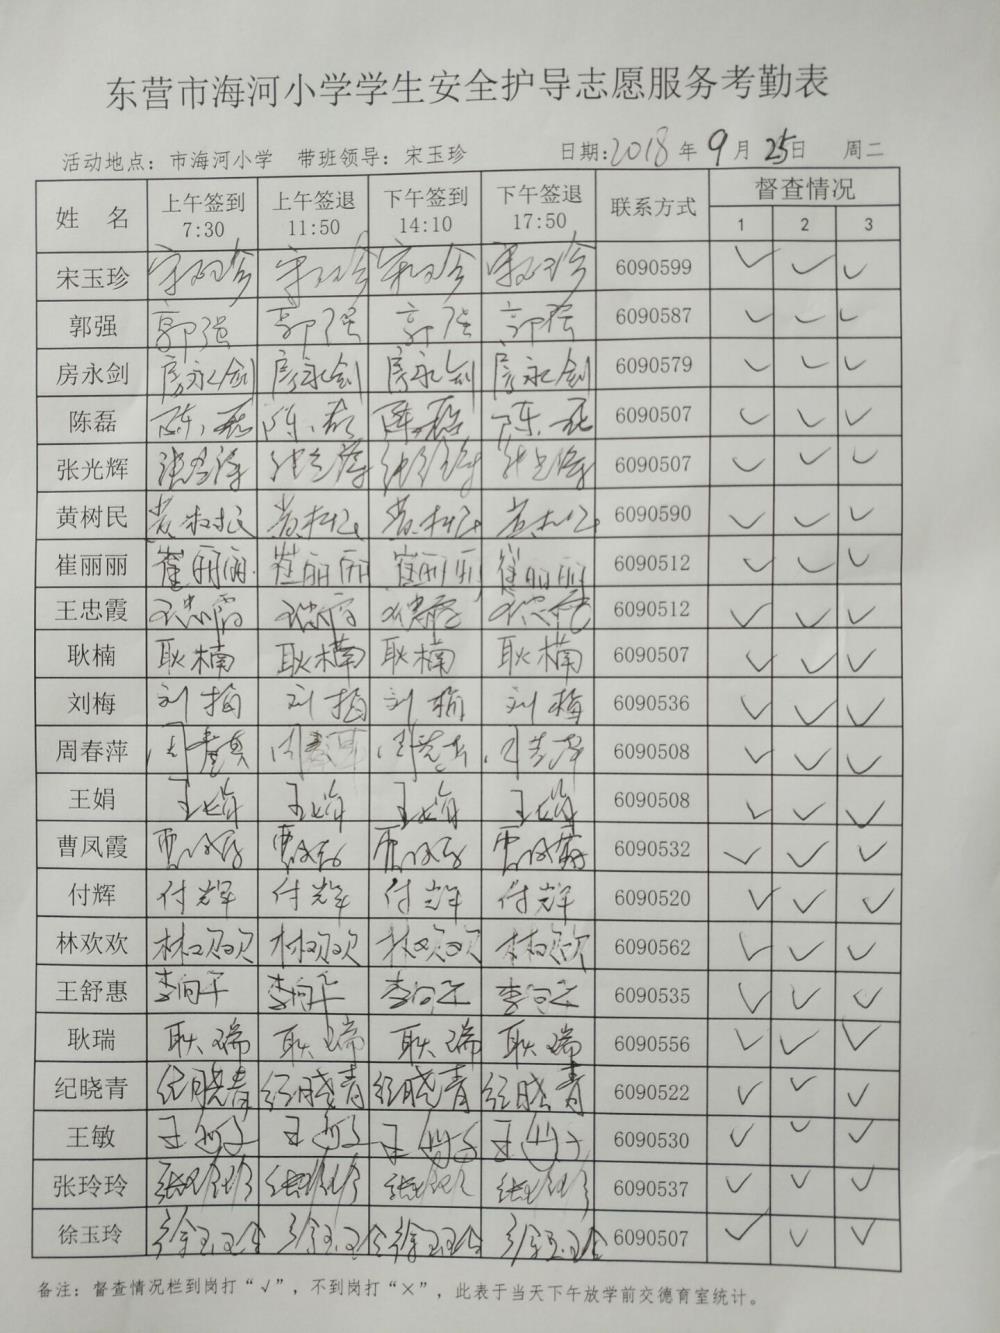 东营市海河小学学生安全护导志愿服务考勤表
活动地点：市海河小学 带班领导：宋玉珍 日期:2018年9月25日 周二
姓 名 上午签到 7:30 上午签退 11:50 下午签到 14:10 下午签退 17:50 联系方式 督查情况 1 2 3
宋玉珍 宋玉珍 宋玉珍 宋玉珍 宋玉珍 6090599 ✓ ✓ ✓
郭强 郭强 郭强 郭强 郭强 6090587 ✓ ✓ ✓
房永剑 房永剑 房永剑 房永剑 房永剑 6090579 ✓ ✓ ✓
陈磊 陈磊 陈磊 陈磊 陈磊 6090507 ✓ ✓ ✓
张光辉 张光辉 张光辉 张光辉 张光辉 6090507 ✓ ✓ ✓
黄树民 黄树民 黄树民 黄树民 黄树民 6090590 ✓ ✓ ✓
崔丽丽 崔丽丽 崔丽丽 崔丽丽 崔丽丽 6090512 ✓ ✓ ✓
王忠霞 王忠霞 王忠霞 王忠霞 王忠霞 6090512 ✓ ✓ ✓
耿楠 耿楠 耿楠 耿楠 耿楠 6090507 ✓ ✓ ✓
刘梅 刘梅 刘梅 刘梅 刘梅 6090536 ✓ ✓ ✓
周春萍 周春萍 周春萍 周春萍 6090508 ✓ ✓ ✓
王娟 王娟 王娟 王娟 王娟 6090508 ✓ ✓ ✓
曹凤霞 曹凤霞 曹凤霞 曹凤霞 曹凤霞 6090532 ✓ ✓ ✓
付辉 付辉 付辉 付辉 付辉 6090520 ✓ ✓ ✓
林欢欢 林欢欢 林欢欢 林欢欢 林欢欢 6090562 ✓ ✓ ✓
王舒惠 李向平 李向平 李向平 李向平 6090535 ✓ ✓ ✓
耿瑞 耿瑞 耿瑞 耿瑞 耿瑞 6090556 ✓ ✓ ✓
纪晓青 纪晓青 纪晓青 纪晓青 纪晓青 6090522 ✓ ✓ ✓
王敏 王敏 王敏 王敏 王敏 6090530 ✓ ✓ ✓
张玲玲 张玲玲 张玲玲 张玲玲 张玲玲 6090537 ✓ ✓ ✓
徐玉玲 徐玉玲 徐玉玲 徐玉玲 徐玉玲 6090507 ✓ ✓ ✓
备注：督查情况栏到岗打“√”，不到岗打“×”，此表于当天下午放学前交德育室统计。